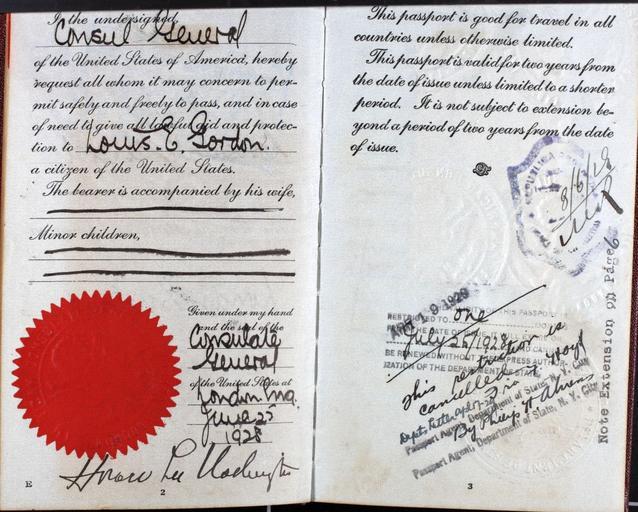 I, the undersigned,
Consul General
of the United States of America, hereby
request all whom it may concern to per-
mit safely and freely to pass, and in case
of need to give all lawful aid and protec-
tion to Louis. C. Gordon.
a citizen of the United States.
The bearer is accompanied by his wife,
Minor children,
Given under my hand
and the seal of the
Consulate
General
of the United States at
London Eng.
June 25
1928
Horace Lee Washington
E
2
This passport is good for travel in all
countries unless otherwise limited.
This passport is valid for two years from
the date of issue unless limited to a shorter
period. It is not subject to extension be-
yond a period of two years from the date
of issue.
APR 19 1929
THIS PASSPORT
RESTRICTED TO one
THE DATE OF
July 25/1928
BE RENEWED WITHOUT EXPRESS AUTHOR-
IZATION OF THE DEPARTMENT OF STATE
This restriction is
cancelled
Passport Agent, Department of State, N. Y. City
By Philip
Passport Agent, Department of State, N. Y. City
Note Extension on Page 6
3